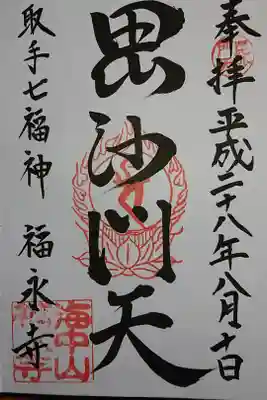 奉拝 平成二十八年八月十日
毘沙门天
取手七福神 福永寺